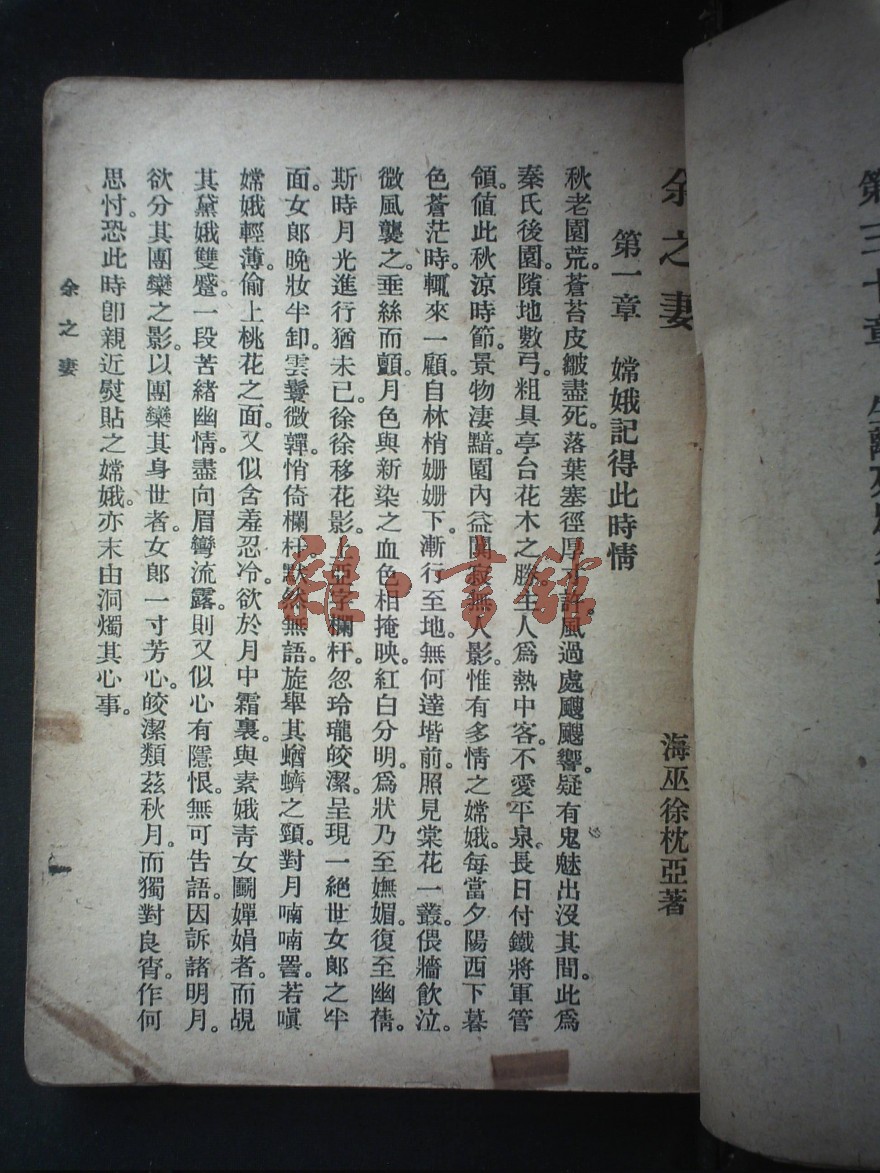 余之妻
海巫徐枕亞著
第一章 嫦娥記得此時情
秋老園荒。蒼苔皮皺盡死。落葉塞徑厚寸許。風過處颼颼響。疑有鬼魅出沒其間。此爲
秦氏後園。隙地數弓。粗具亭台花木之勝。主人爲熱中客。不愛平泉。長日付鐵將軍管
領。値此秋涼時節。景物淒黯。園內益闃寂無人影。惟有多情之嫦娥。每當夕陽西下暮
色蒼茫時。輒來一顧。自林梢姍姍下。漸行至地。無何達堦前。照見棠花一叢。偎牆飮泣。
微風襲之。垂絲而顫。月色與新染之血色相掩映。紅白分明。爲狀乃至嫵媚。復至幽蒨。
斯時月光進行猶未已。徐徐移花影。上亞字欄杆。忽玲瓏皎潔。呈現一絕世女郎之半
面。女郎晚妝半卸。雲鬟微嚲。悄倚欄杆。默然無語。旋舉其蝤蠐之頸。對月喃喃詈。若嗔
嫦娥輕薄。偷上桃花之面。又似含羞忍冷。欲於月中霜裏。與素娥靑女鬭嬋娟者。而覘
其黛娥雙蹙。一段苦緒幽情。盡向眉彎流露。則又似心有隱恨。無可告語。因訴諸明月。
欲分其團欒之影。以團欒其身世者。女郎一寸芳心。皎潔類茲秋月。而獨對良宵。作何
思忖。恐此時卽親近熨貼之嫦娥。亦末由洞燭其心事。
余之妻
一
第三十章
雜·書館